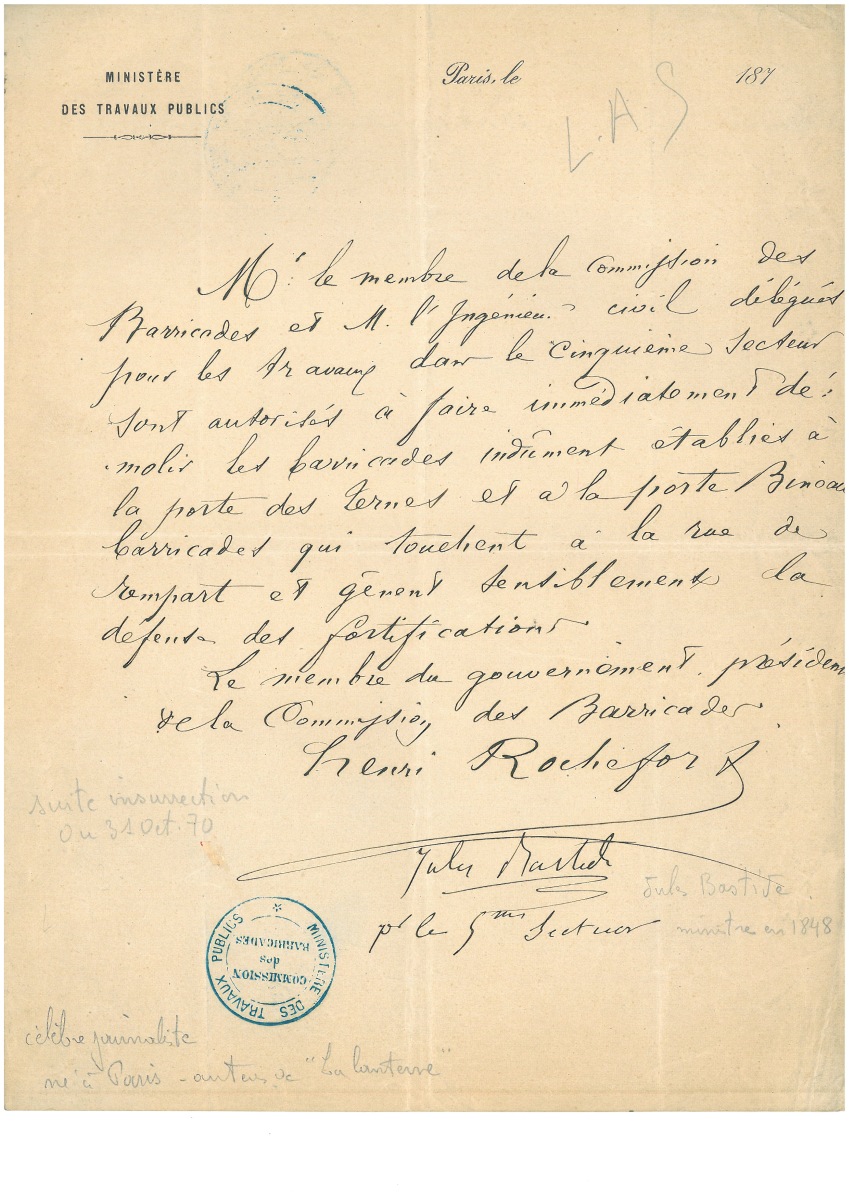 MINISTÈRE
DES TRAVAUX PUBLICS
Paris, le 187
L.A.S
Mr le membre de la Commission des
Barricades et M. l'Ingénieur civil délégués
pour les travaux dans le cinquième secteur
sont autorisés à faire immédiatement dé-
molir les barricades indûment établies à
la porte des Ternes et à la porte Bineau
barricades qui touchent à la rue de
rempart et gênent sensiblement la
défense des fortifications
Le membre du gouvernement, président
de la Commission des Barricades
Henri Rochefort
suite insurrection
du 31 Oct. 70
Jules Bastide
Jules Bastide
pr le 5me Secteur
ministre en 1848
MINISTERE DES TRAVAUX PUBLICS
COMMISSION
des
BARRICADES
célèbre journaliste
né à Paris - auteur de "La lanterne"